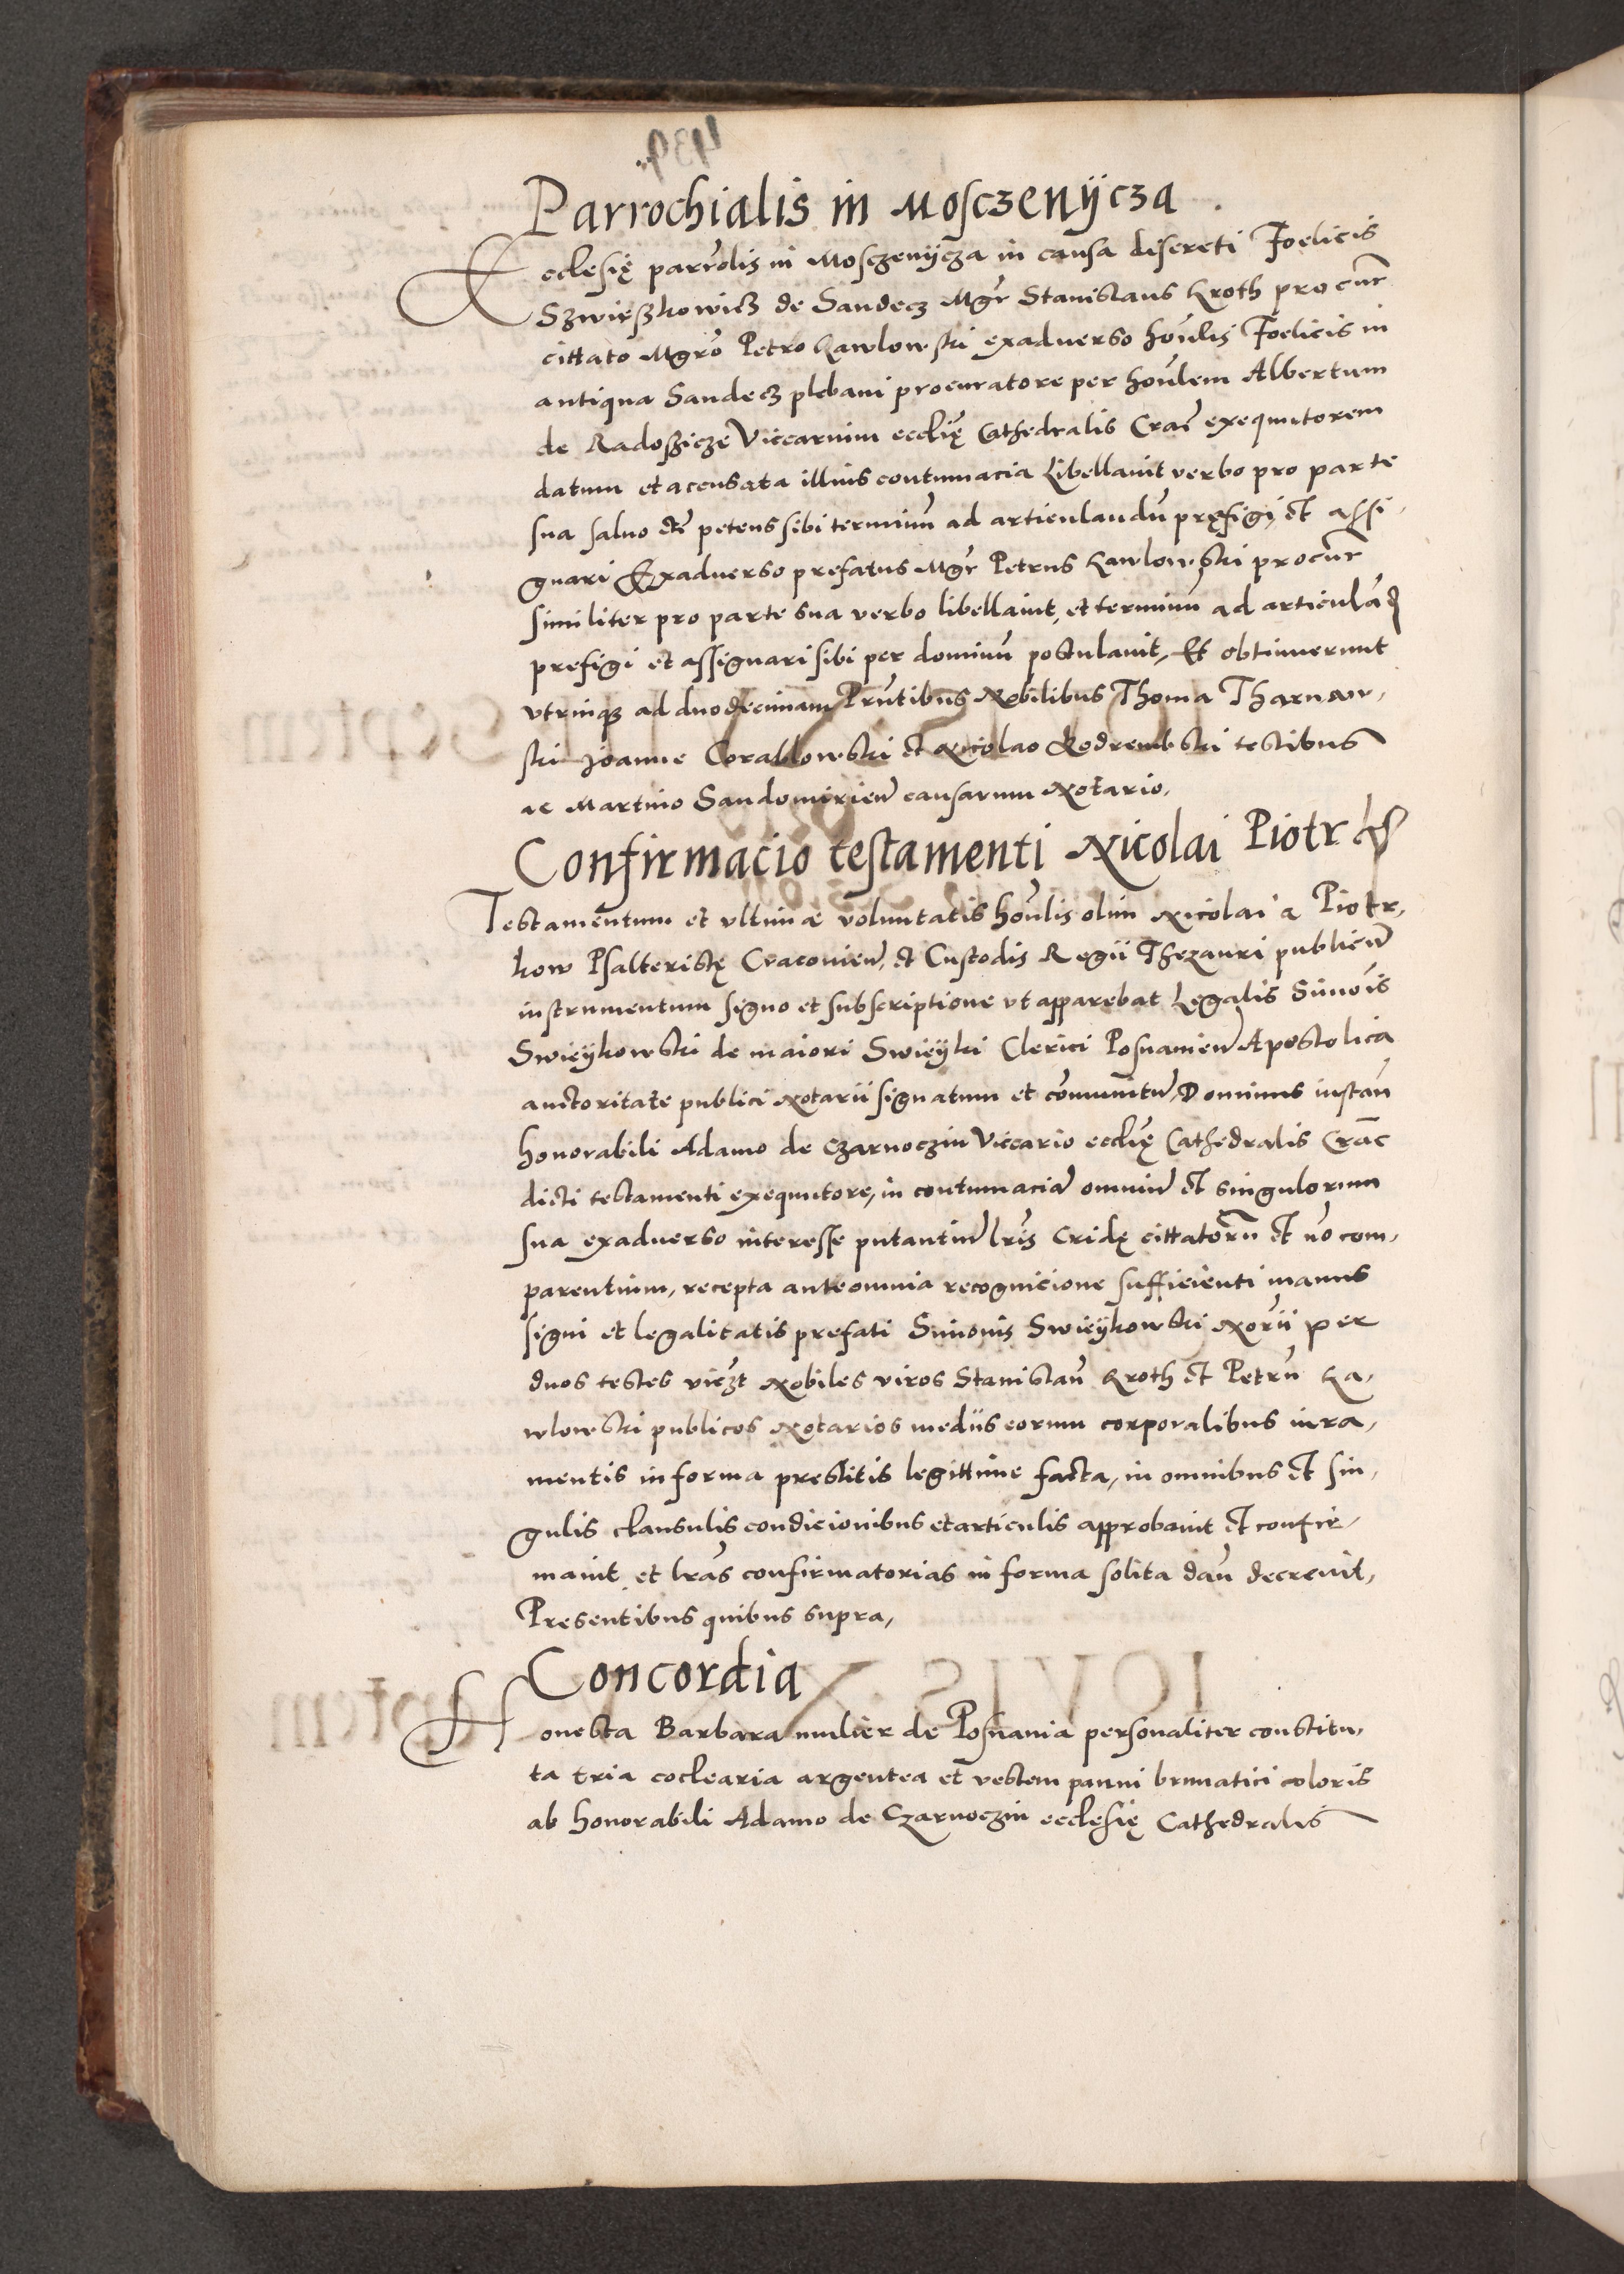 Parrochialis in Mosczenÿcza.
Ecclesię parrolis in Mosczenÿcza in causa discreti Foelicis
Szwirszkowicz de Sandecz Mgr Stanislaus Kroth procur
cittato Mgro Petro Kawlowski exaduerso honlis Foelicis in
antiqua Sandecz plebani procuratore per honlem Albertum
de Radoszicze Viccarium ecclię Cathedralis Crac exequutorem
datum et accusata illius contumacia Libellauit verbo pro parte
sua saluo etc petens sibi terminum ad articulandum pręfigi, et assi-
gnari Exaduerso prefatus Mgr Petrus Kawlowski procur
similiter pro parte sua verbo libellauit, et terminum ad articuland
prefigi et assignari sibi per dominum postulauit, Et obtinuerunt
vtrinque ad duodecimam Prntibus Nobilibus Thoma Tharnaw-
ski Joanne Corablowski et Nicolao Kodrembski testibus
ac Martino Sandomirien causarum Notario.
Confirmacio testamenti Nicolai Piotrk
Testamentum et vltimæ voluntatis honlis olim Nicolai a Piotr-
kow Psalteristę Cracouien, et Custodis Regii Thezauri publicum
instrumentum signo et subscriptione vt apparebat Legalis Simois
Swieÿkowski de maiori Swieÿki Clerici Posnanien Apostolica
auctoritate publici Notarii signatum et comunitum, Dominus instan
honorabili Adamo de Czarnoczin Viccario ecclię Cathedralis Crac
dicti testamenti exequutore, in contumaciam omnium et singulorum
sua exaduerso interesse putantium lris Cridę cittatorum et no com-
parentium, recepta ante omnia recognicione sufficienti manus
signi et legalitatis prefati Simonis Swieÿkowski Norii per
duos testes viczt Nobiles viros Stanislaum Kroth et Petrum Ka-
wlowski publicos Notarios mediis eorum corporalibus iura-
mentis in forma prestitis legittime facta, in omnibus et sin-
gulis clausulis condicionibus et articulis approbauit et confir-
mauit et lras confirmatorias in forma solita dan decreuit,
Presentibus quibus supra,
Concordia
Honesta Barbara mulier de Posnania personaliter constitu-
ta tria coclearia argentea et vestem panni brunatici coloris
ab honorabili Adamo de Czarnoczin ecclesię Cathedralis